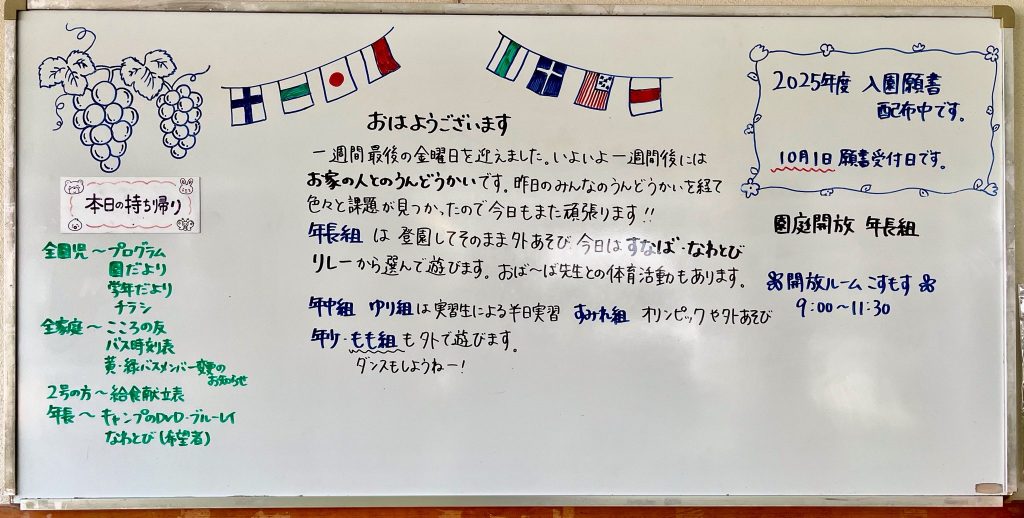 本日の持ち帰り
全園児〜プログラム
園だより
学年だより
チラシ
全家庭〜こころの友
バス時刻表
黄・緑バスメンバー変更の
お知らせ
2号の方〜給食献立表
年長〜キャンプのDVD・ブルーレイ
なわとび(希望者)
おはようございます
一週間最後の金曜日を迎えました。いよいよ一週間後には
お家の人とのうんどうかいです。昨日のみんなのうんどうかいを経て
色々と課題が見つかったので今日もまた頑張ります!!
年長組 は 登園してそのまま外あそび、今日はすなば・なわとび
リレーから選んで遊びます。おば〜ば先生との体育活動もあります。
年中組 ゆり組は実習生による半日実習 すみれ組 オリンピックや外あそび
年少・もも組も外で遊びます。
ダンスもしようねー!
2025年度 入園願書
配布中です。
10月1日願書受付日です。
園庭開放 年長組
開放ルームこすもす
9:00〜11:30